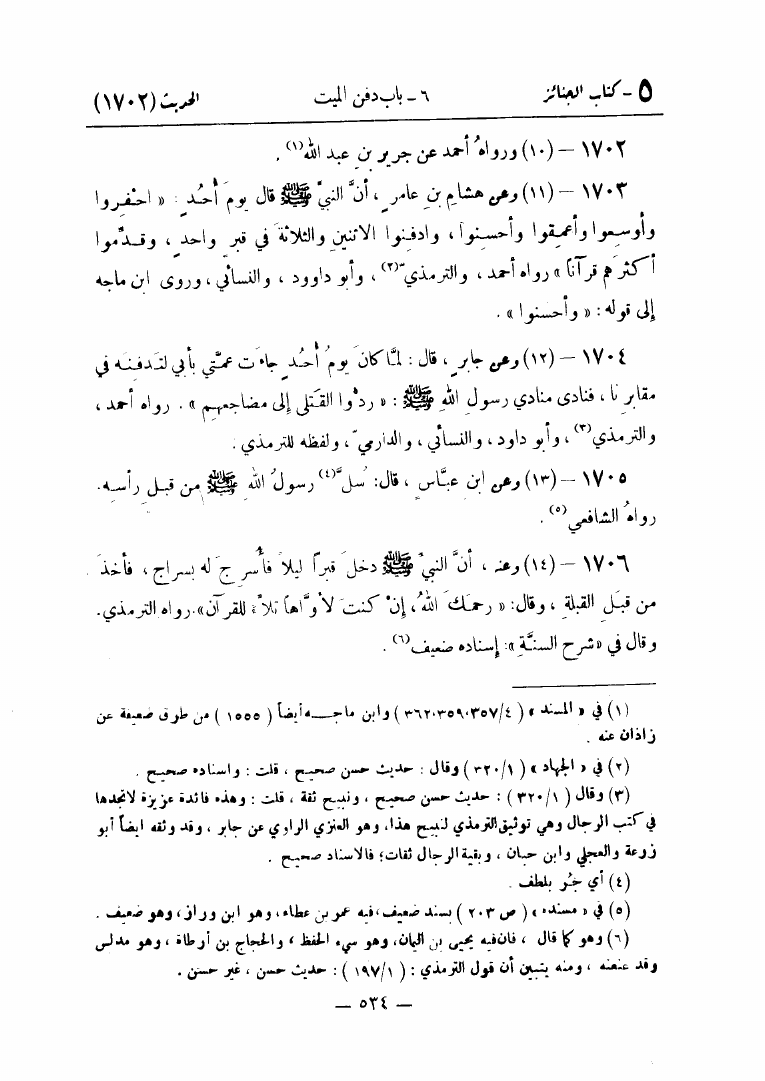 ٥ - كتاب الجنائز ٦ - باب دفن الميت الحديث (١٧٠٢)
١٧٠٢ - (١٠) ورواهُ أحمد عن جريرِ بنِ عبد الله(١) .
١٧٠٣ - (١١) وعن هشامِ بنِ عامرٍ ، أنَّ النبيَّ ﷺ قال يومَ أُحُدٍ : « احْفِروا
وأوسِعوا وأعمِقوا وأحسِنوا ، وادفِنوا الاثنينِ والثلاثةَ في قبرٍ واحدٍ ، وقدِّموا
أكثرَهم قرآناً » رواه أحمد ، والترمذيّ(٢) ، وأبو داوود ، والنسائي ، وروى ابن ماجه
إلى قوله : « وأحسنوا » .
١٧٠٤ - (١٢) وعن جابرٍ ، قال : لمَّا كانَ يومُ أُحُدٍ جاءَت عمَّتي بأبي لتَدفِنَه في
مقابرِنا ، فنادى منادي رسولِ اللهِ ﷺ : « ردُّوا القَتلى إلى مضاجعِهم » . رواه أحمد ،
والترمذي(٣) ، وأبو داود ، والنسائي ، والدارميّ ، ولفظه للترمذي .
١٧٠٥ - (١٣) وعن ابن عبَّاسٍ ، قال : سُلَّ(٤) رسولُ اللهِ ﷺ من قبلِ رأسِه .
رواهُ الشافعي(٥) .
١٧٠٦ - (١٤) وعنه ، أنَّ النبيَّ ﷺ دخلَ قبراً ليلاً فأُسرِجَ له بسراج ، فأخذَ
من قبَلِ القبلةِ ، وقال : « رحمَكَ اللهُ ، إنْ كنتَ لأوَّاهاً تلاَّءً للقرآن » . رواه الترمذي .
وقال في « شرح السنَّةِ » : إسناده ضعيف(٦) .
(١) في « المسند » ( ٤/٣٥٧،٣٥٩،٣٦٢ ) وابن ماجه أيضاً ( ١٥٥٥ ) من طرق ضعيفة عن
زاذان عنه .
(٢) في « الجهاد » ( ١/٣٢٠ ) وقال : حديث حسن صحيح ، قلت : واسناده صحيح .
(٣) وقال ( ١/٣٢٠ ) : حديث حسن صحيح ، ونبيح ثقة ، قلت : وهذه فائدة عزيزة لانجدها
في كتب الرجال وهي توثيق الترمذي لنبيح هذا، وهو العنزي الراوي عن جابر ، وقد وثقه ايضاً أبو
زرعة والعجلي وابن حبان ، وبقية الرجال ثقات؛ فالاسناد صحيح .
(٤) أي جُر بلطف .
(٥) في « مسنده » ( ص ٢٠٣ ) بسند ضعيف، فيه عمر بن عطاء، وهو ابن وراز، وهو ضعيف .
(٦) وهو كما قال ، فان فيه يحيى بن اليمان، وهو سيء الحفظ ، والحجاج بن أرطاة ، وهو مدلس
وقد عنعنه ، ومنه يتبين أن قول الترمذي : ( ١/١٩٧ ) : حديث حسن ، غير حسن .
— ٥٣٤ —